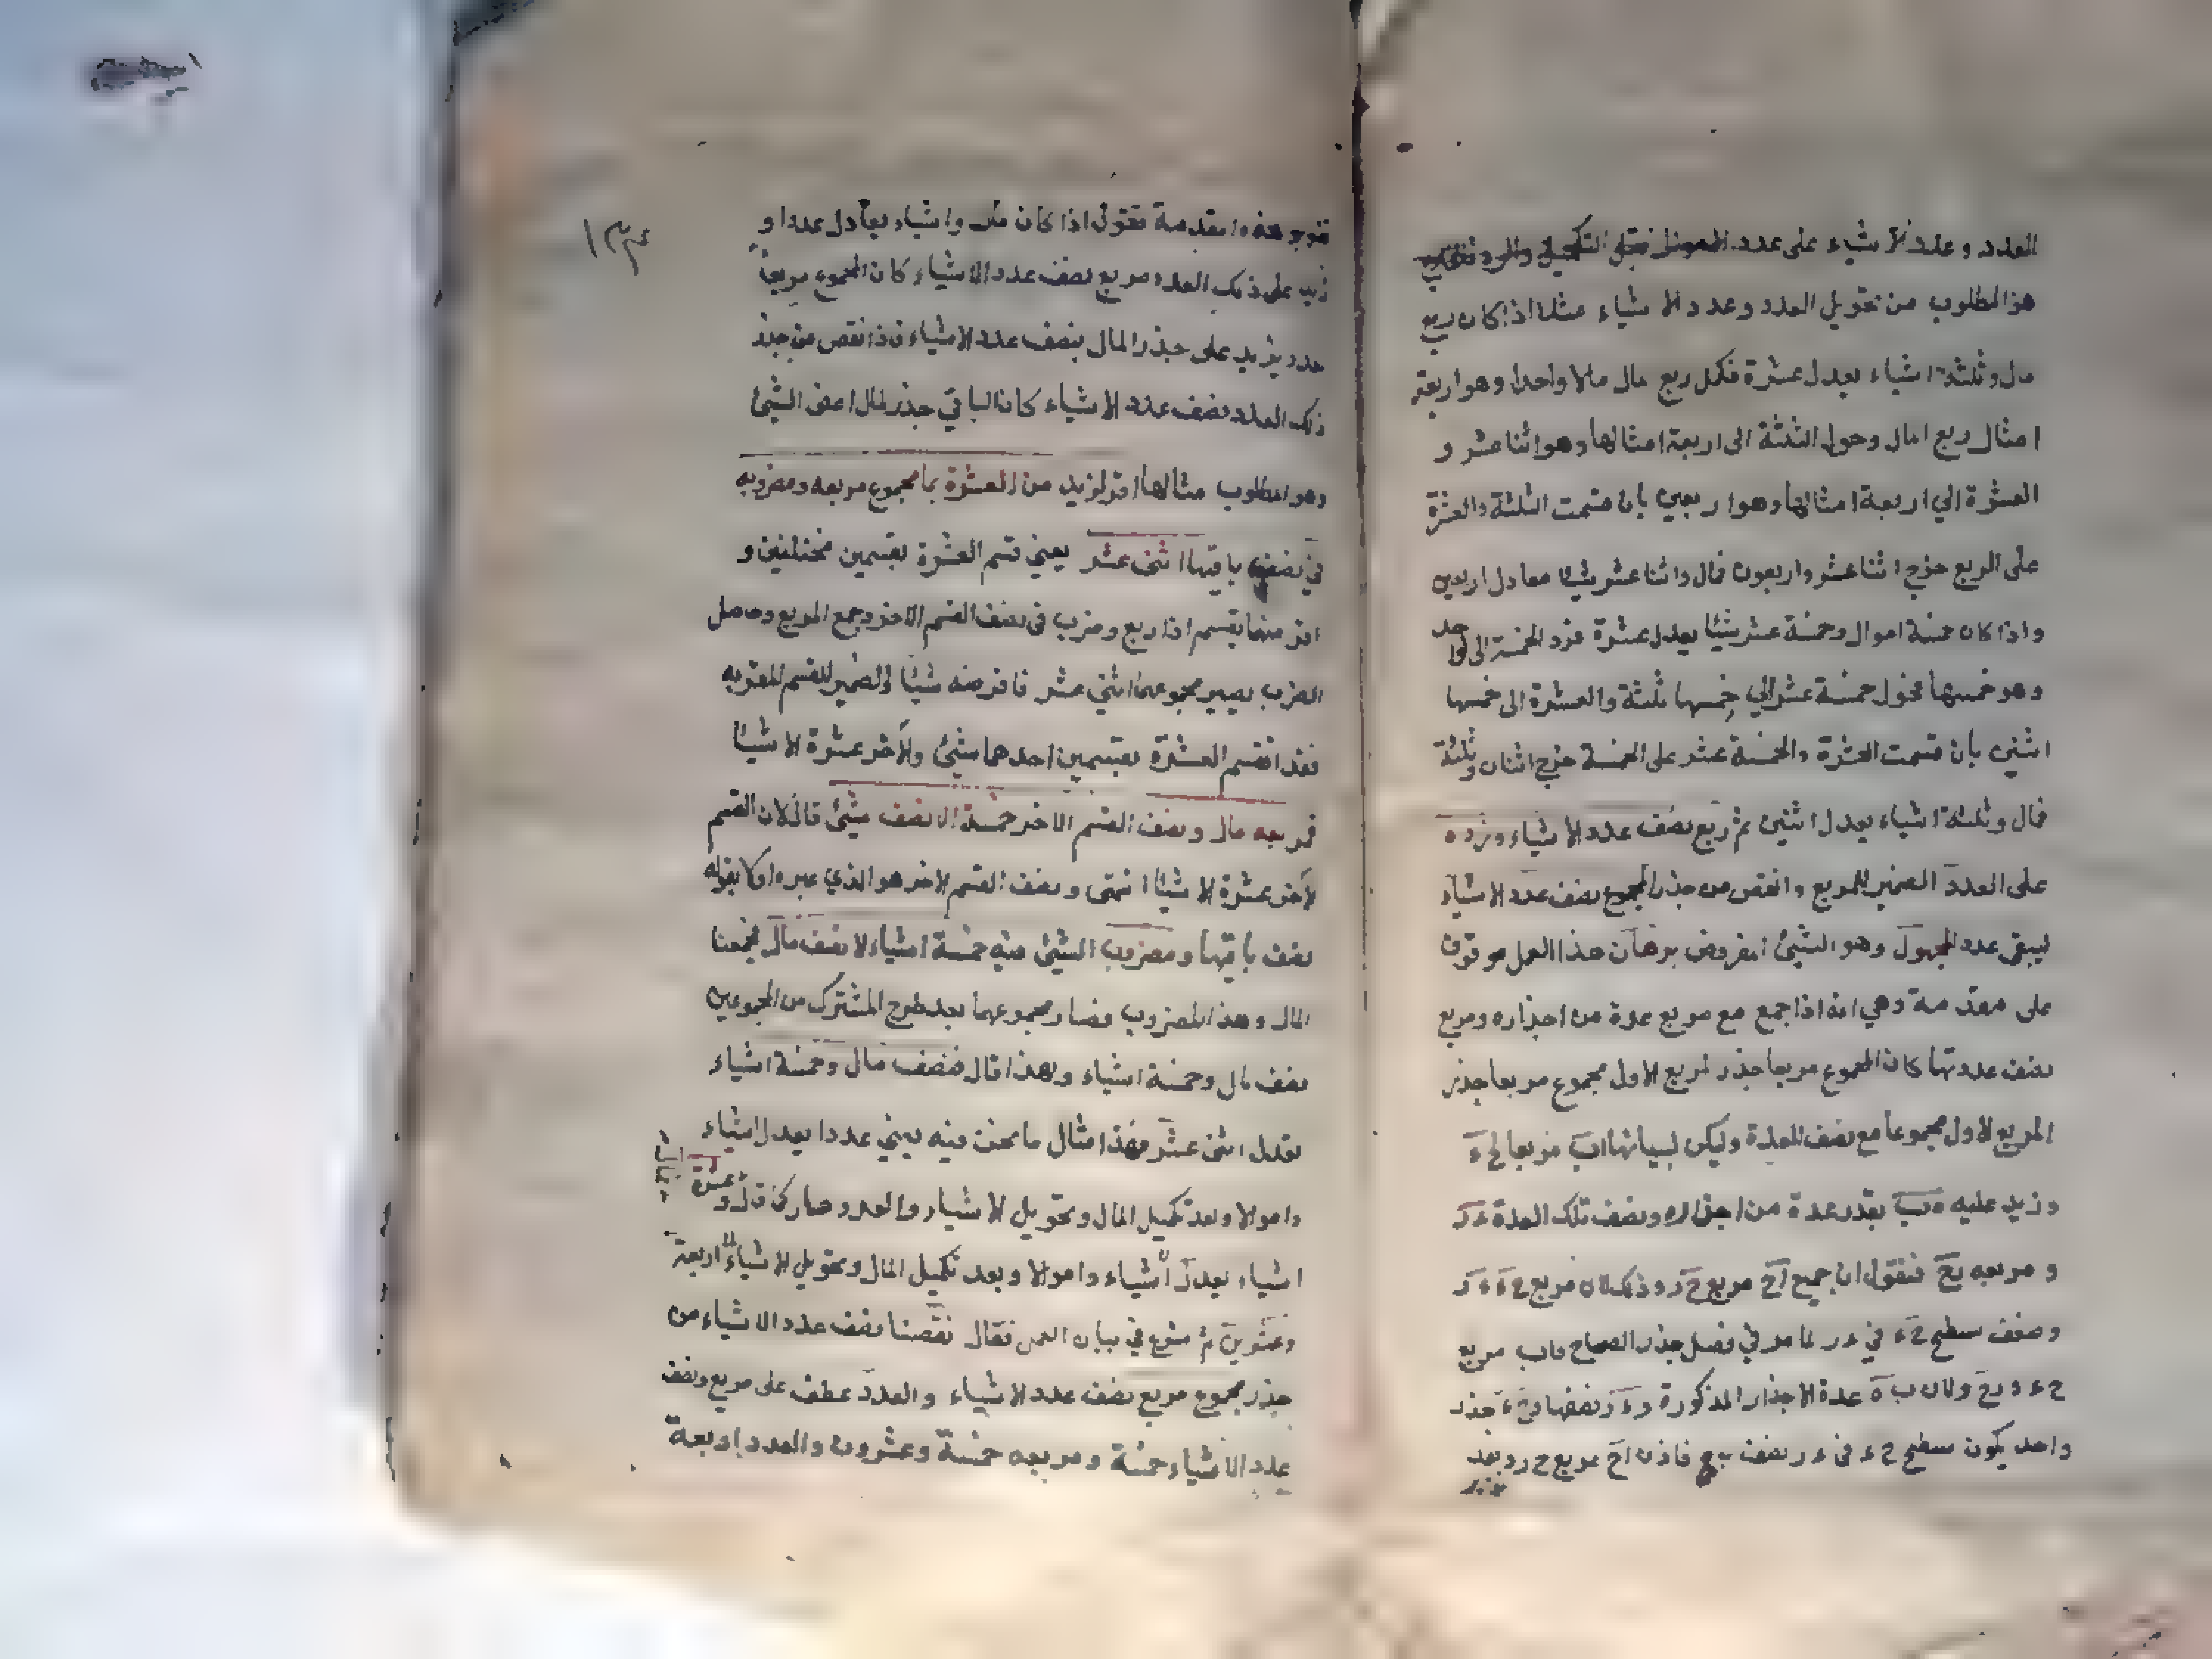 العدد وعدد الاشياء على عدد
هو المطلوب من تحويل العدد وعدد الاشياء مثلا اذا كان ربع
مال وثلثة اشياء يعدل عشرة فكمل ربع مال مالا واحدا وهو اربعة
امثال ربع المال وحول الثلثة الى اربعة امثالها وهو اثنا عشر و
العشرة الى اربعة امثالها وهو اربعين بان قسمت الثلثة والعشرة
على الربع خرج اثنا عشر واربعون فمال واثنا عشر شيئا معادل اربعين
واذا كان خمسة اموال وخمسة عشر شيئا يعدل عشرة فرد الخمسة الى الواحد
وهو خمسها فحول خمسة عشر الى خمسها ثلثة والعشرة الى خمسها
اثنين بان قسمت العشرة والخمسة عشر على الخمسة خرج اثنان وثلثة
فمال وثلثة اشياء يعدل اثنين ثم ربع نصف عدد الاشياء وزده
على العدد الضمير للمربع وانقص من جذر المجموع نصف عدد الاشياء
ليبقى عدد المجهول وهو الشيئ المفروض برهان هذا العمل موقوف
على مقدمة وهي انه اذا جمع مع مربع عدة من اجذاره ومربع
نصف عدتها كان المجموع مربعا جذر المربع الاول مجموع مربعا جذر
المربع الاول مجموعا مع نصف العدة وليكن لبيانها اب مربعا لح ء
وزيد عليه ه ب بقدر عدة من اجذاره ونصف تلك العدة ء ر
و مربعه يح فنقول ان جميع اح مربع ح ر وذلك لان مربع ح ء ء ر
وضعف سطح ح ء في ء ر لما مر في فصل جذر الصحاح واب مربع
ح ء و ر ح ولان ب ه عدة الاجذار المذكورة و ء ر نصفها و ح ء جذر
واحد يكون سطح ح ء في ء ر نصف ب ج فاذن اح مربع ح ر وبعد
١٣٤
هذه المقدمة فنقول اذا كان مال واشياء يعادل عددا و
زيد على ذلك العدد مربع نصف عدد الاشياء كان المجموع مربعا
يزيد على جذر المال بنصف عدد الاشياء فاذا نقص من جذر
ذلك العدد نصف عدد الاشياء كان الباقي جذر المال اعنى الشيئ
وهو المطلوب مثالها اقر لزيد من العشرة بما مجموع مربعه ومضروبه
في نصف باقيها اثنى عشر يعني قسم العشرة بقسمين مختلفين و
اقر منهما بقسم اذا ربع وضرب في نصف القسم الاخر وجمع المربع وحاصل
الضرب يصير مجموعهما اثني عشر فافرضه شيئا الضمير للقسم المقر به
فقد انقسم العشرة بقسمين احدهما شيئ والآخر عشرة الا شيئا
فمربعه مال ونصف القسم الاخر خمسة الا نصف شيئ قال لان القسم
الآخر عشرة الا شيئا انتهى ونصف القسم الاخر هو الذي عبره اولا بقوله
نصف باقيها ومضروب الشيئ فيه خمسة اشياء الا نصف مال فجمعنا
المال وهذا المضروب فصار مجموعهما بعد طرح المشترك من المجموعين
نصف مال وخمسة اشياء ولهذا قال فنصف مال وخمسة اشياء
يعدل اثنى عشر فهذا مثال ما نحن فيه يعني عددا يعدل اشياء
واموالا وبعد تكميل المال وتحويل الاشياء والعدد صار كما قال وعشرة
اشياء يعدل اشياء واموالا وبعد تكميل المال وتحويل الاشياء اربعة
وعشرين ثم شرع في بيان العمل فقال نقصنا نصف عدد الاشياء من
جذر مجموع مربع نصف عدد الاشياء والعدد عطف على مربع ونصف
عدد الاشياء خمسة ومربعه خمسة وعشرون والعدد اربعة